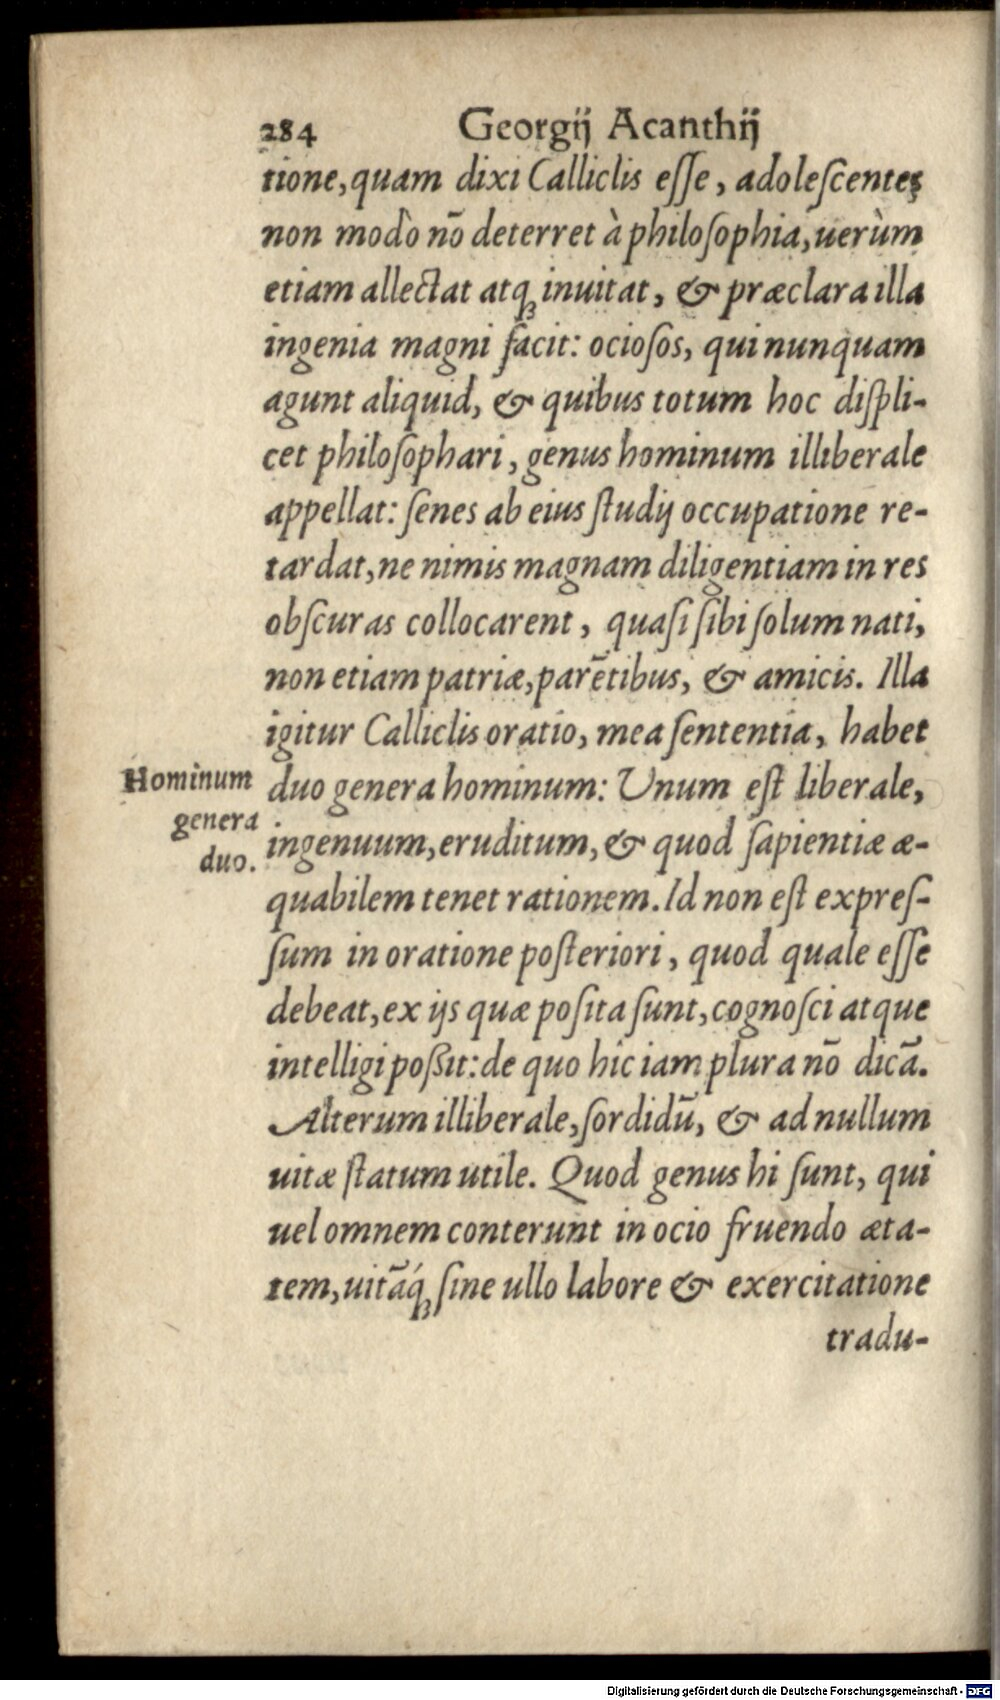 284 Georgij Acanthij
tione, quam dixi Calliclis eſſe, adoleſcentes
non modò nō deterret à philoſophia, uerùm
etiam allectat atq́ꝫ inuitat, & præclara illa
ingenia magni facit: ocioſos, qui nunquam
agunt aliquid, & quibus totum hoc diſpli-
cet philoſophari, genus hominum illiberale
appellat: ſenes ab eius ſtudij occupatione re-
tardat, ne nimis magnam diligentiam in res
obſcuras collocarent, quaſi ſibi ſolum nati,
non etiam patriæ, parētibus, & amicis. Illa
igitur Calliclis oratio, mea ſententia, habet
Hominum
genera
duo.
duo genera hominum: Unum eſt liberale,
ingenuum, eruditum, & quod ſapientiæ æ-
quabilem tenet rationem. Id non eſt expreſ-
ſum in oratione poſteriori, quod quale eſſe
debeat, ex ijs quæ poſita ſunt, cognoſci atque
intelligi poßit: de quo hic iam plura nō dicā.
Alterum illiberale, ſordidū, & ad nullum
uitæ ſtatum utile. Quod genus hi ſunt, qui
uel omnem conterunt in ocio fruendo æta-
tem, uitāq́ꝫ ſine ullo labore & exercitatione
tradu-
Digitalisierung gefördert durch die Deutsche Forschungsgemeinschaft - DFG